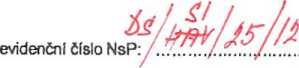 evidenční číslo NsP: DS/SI/25/12